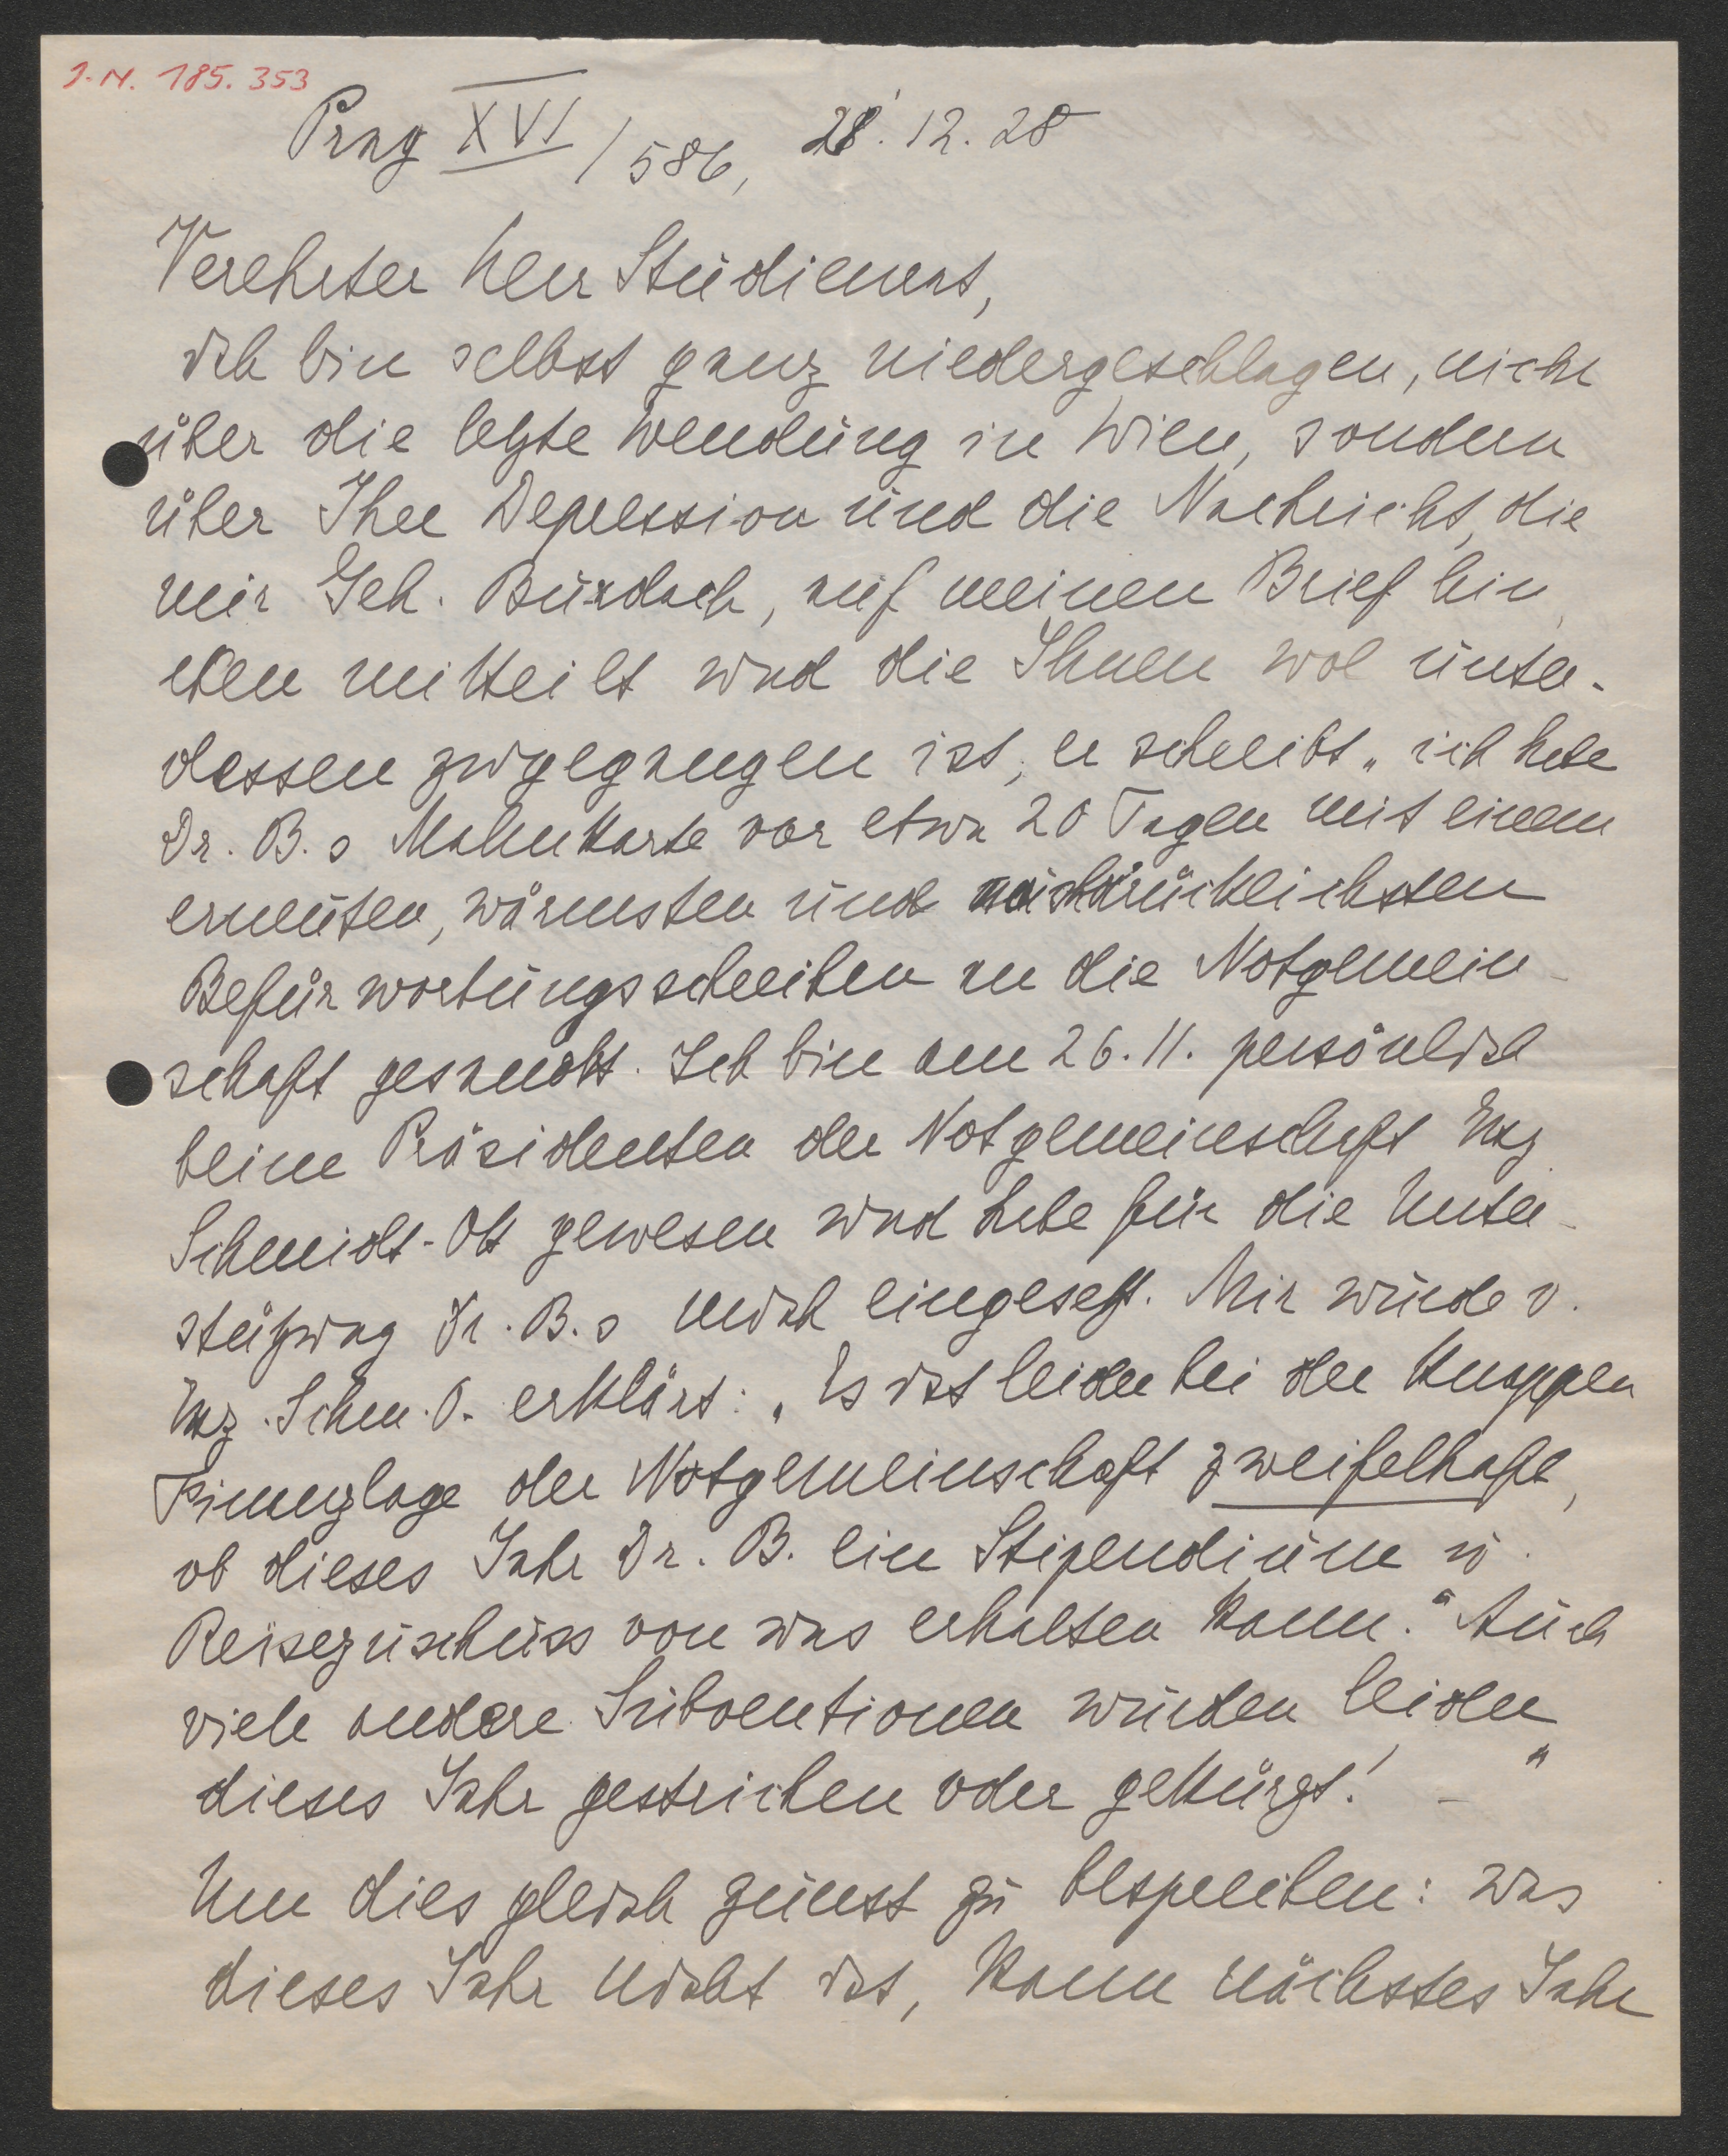 I.N. 185.353
Prag XVI / 586, 28. 12. 28
Verehrter Herr Studienrat,
ich bin selbst ganz niedergeschlagen, nicht
über die letzte Wendung in Wien, sondern
über Ihre Depression und die Nachricht, die
mir Geh. Burdach, auf meinen Brief hin,
eben mitteilt und die Ihnen wol unter-
dessen zugegangen ist, er schreibt „ich habe
Dr. B.s Mahnkarte vor etwa 20 Tagen mit einem
erneuten, wärmsten und nachdrücklichsten
Befürwortungsschreiben an die Notgemein-
schaft gesandt. Ich bin am 26. 11. persönlich
beim Präsidenten der Notgemeinschaft Exz.
Schmidt-Ott gewesen und habe für die Unter-
stützung Dr. B.s mich eingesetzt. Mir wurde v.
Exz. Schm. O. erklärt: „Es ist leider bei der knappen
Finanzlage der Notgemeinschaft zweifelhaft,
ob dieses Jahr Dr. B. ein Stipendium u.
Reisezuschuss von uns erhalten kann." Auch
viele andere Subventionen wurden leider
dieses Jahr gestrichen oder gekürzt! – "
Um dies gleich zuerst zu besprechen: was
dieses Jahr nicht ist, kann nächstes Jahr